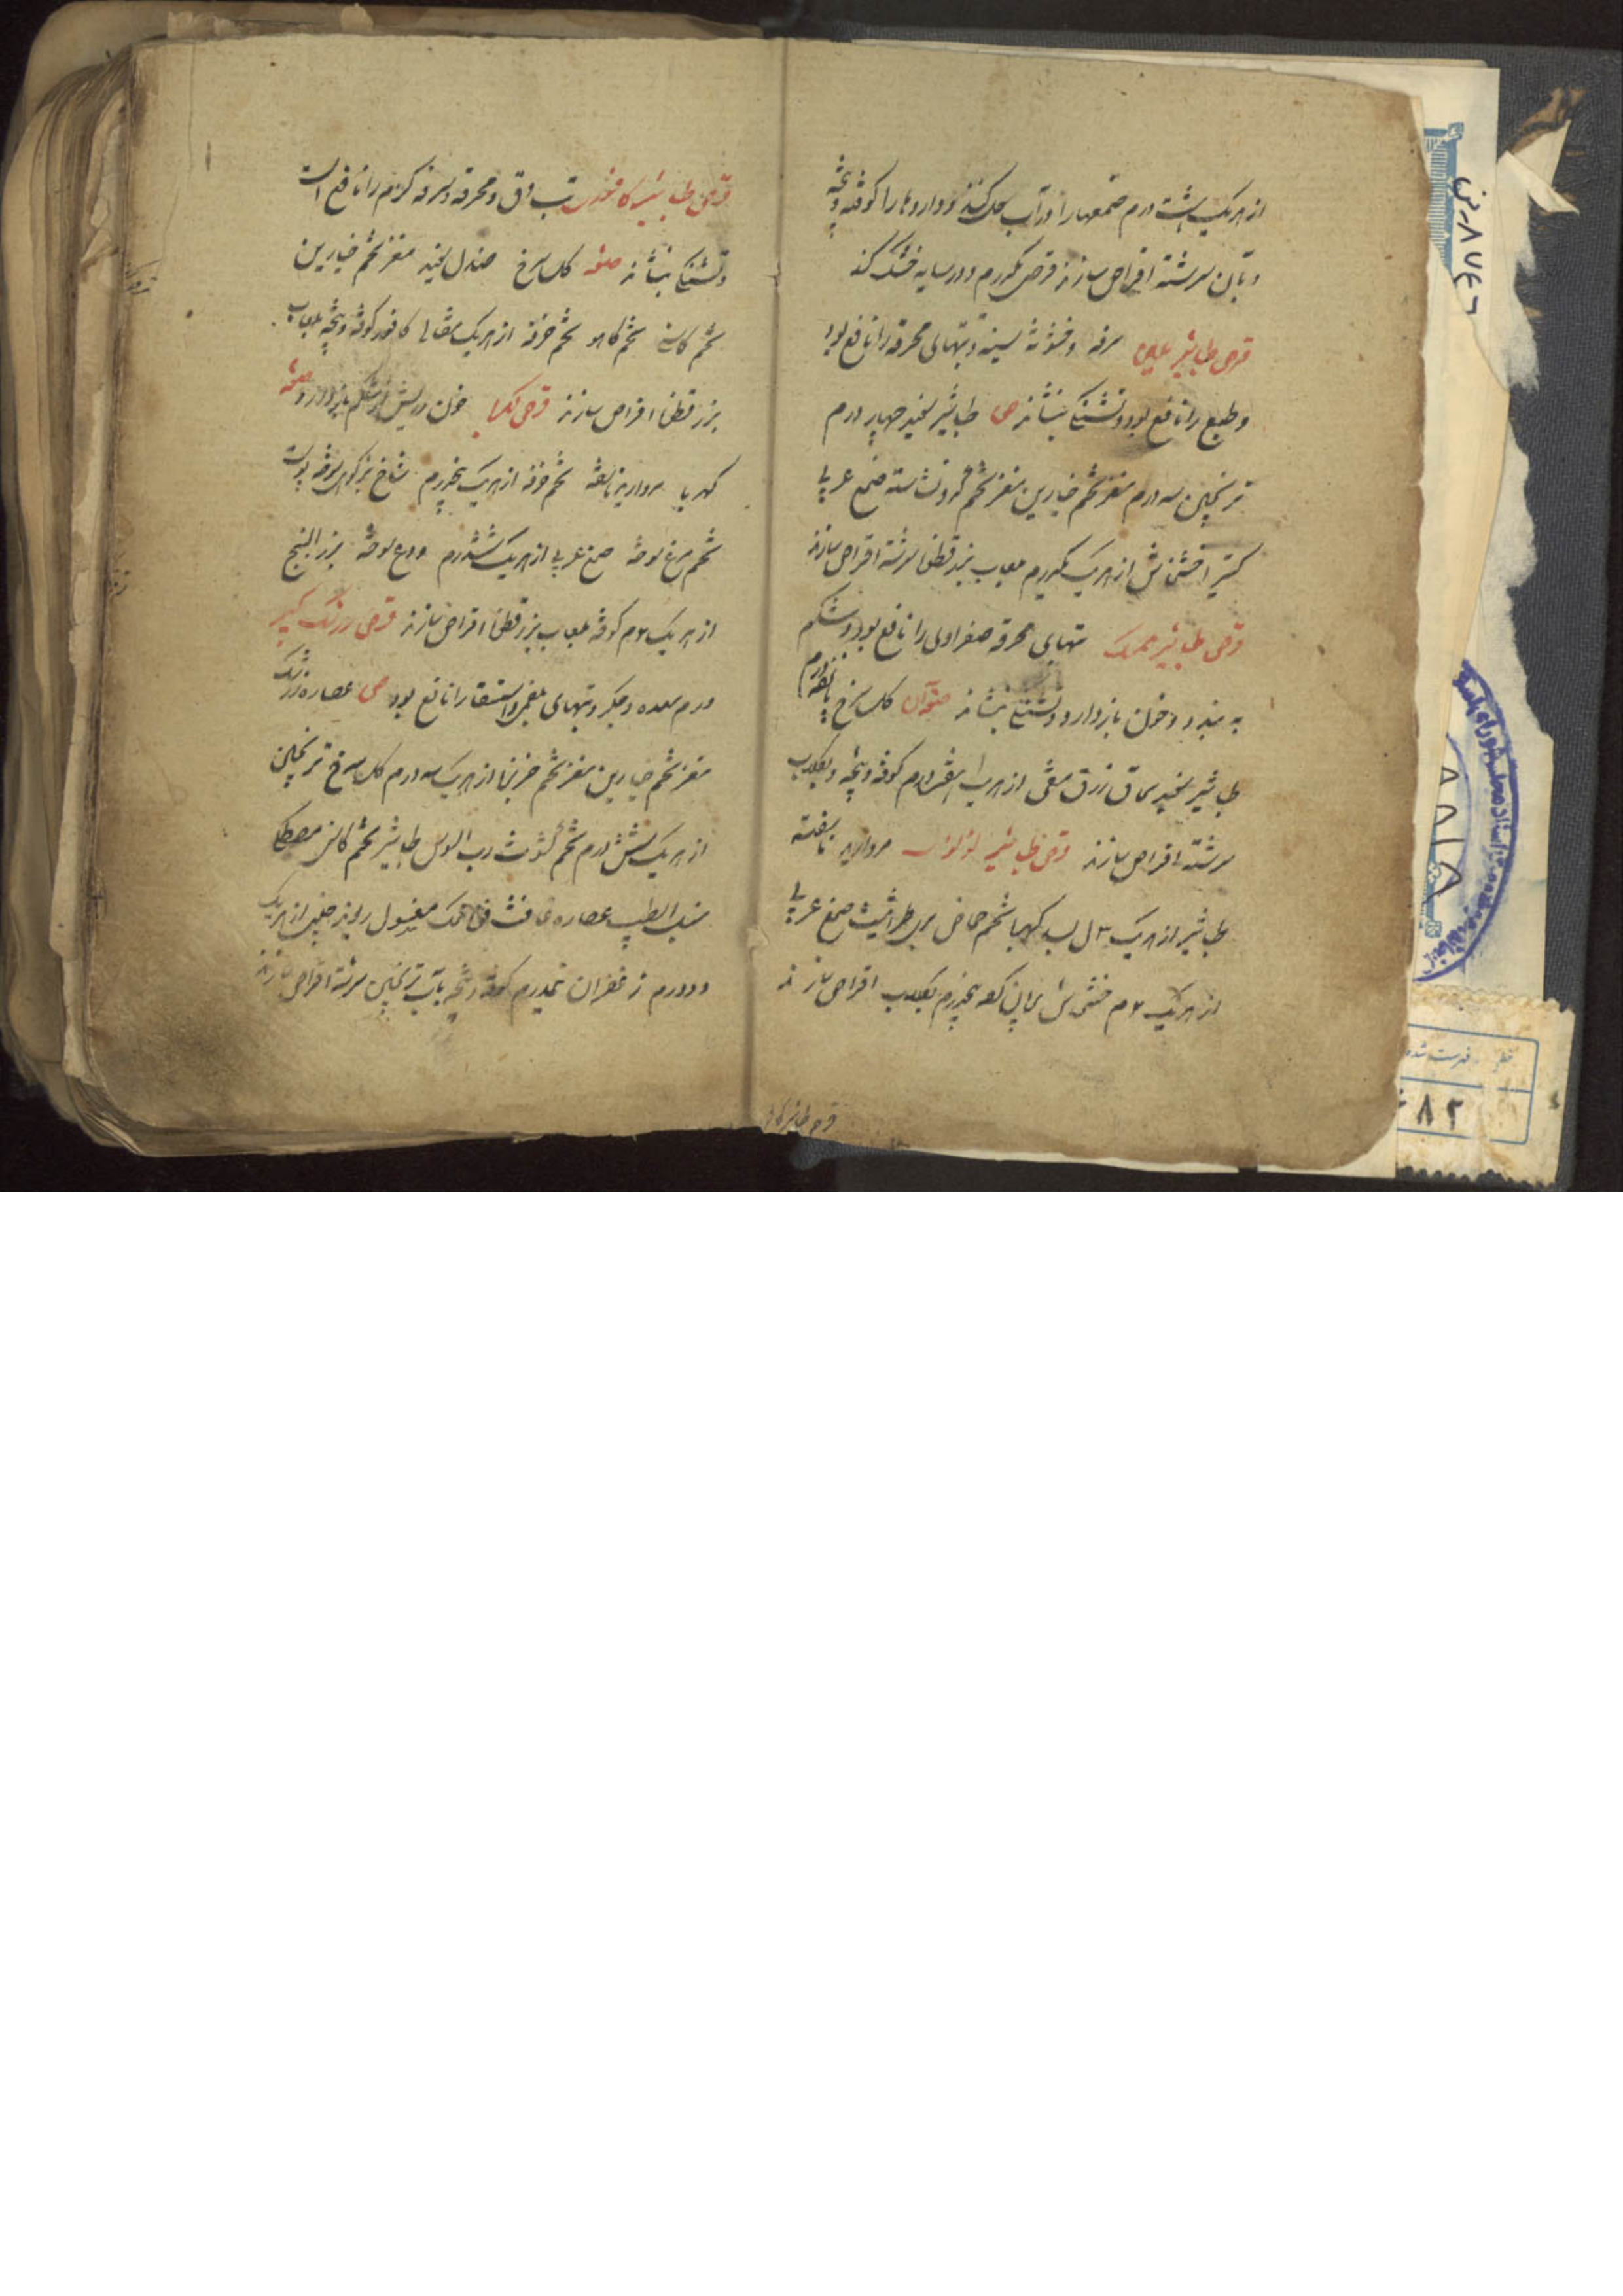 از هریک هشت درم صمغها را در آب حل کنند و داروها را کوفته و بیخته
و بآن سرشته اقراص سازند قرصی یکدرم و در سایه خشک کنند
قرص طباشیر ملین سرفه و خشونة سینه و تبهای محرقه را نافع بود
و طبع را نافع بود و تشنگی بنشاند ص طباشیر سفید چهار درم
ترنجبین سه درم مغز تخم خیارین مغز تخم کدو نشاسته صمغ عربی
کتیرا خشخاش از هریک یکدرم بلعاب بزرقطونا سرشته اقراص سازند
قرص طباشیر ممسک تبهای محرقه صفراوی را نافع بود و شکم
به بندد و خون بازدارد و تشنگی بنشاند صفة آن گل سرخ پانزده درم
طباشیر سفید سماق زرشک منقی از هریک درم کوفته و بیخته و بگلاب
سرشته اقراص سازند قرص طباشیر لؤلؤی مروارید ناسفته
طباشیر از هریک ۳ کهربا تخم حماض بریان طراثیث صمغ عربی
از هریک ۲م خشخاش بریان کرده پنجدرم بگلاب اقراص سازند
قرص طباشیر کافوری تب دق و محرقه و سرفه گرم را نافع است
و تشنگی بنشاند صفة گل سرخ صندل سفید مغز تخم خیارین
تخم کاسنی تخم کاهو تخم خرفه از هریک مثقالی کافور کوفته و بیخته بلعاب
بزرقطونا اقراص سازند قرص کهربا خون و ریش شکم بازدارد صفة
کهربا مروارید ناسفته تخم خرفه از هریک پنجدرم شاخ بزکوهی سوخته پوست
تخم مرغ سوخته صمغ عربی از هریک ششدرم ودع سوخته بزرالبنج
از هریک ۲م کوفته بلعاب بزرقطونا اقراص سازند قرص زرشک کبیر
ورم معده و جگر و تبهای بلغمی و استسقا را نافع بود ص عصاره زرشک
مغز تخم خیارین مغز تخم خربزه از هریک سه درم گل سرخ ترنجبین
از هریک شش درم تخم کشوث رب السوس طباشیر تخم کاسنی مصطکی
سنبل الطیب عصاره غافث لک مغسول ریوند چینی از هریک
دو درم زعفران نیمدرم کوفته و بیخته بآب ترنجبین سرشته اقراص سازند